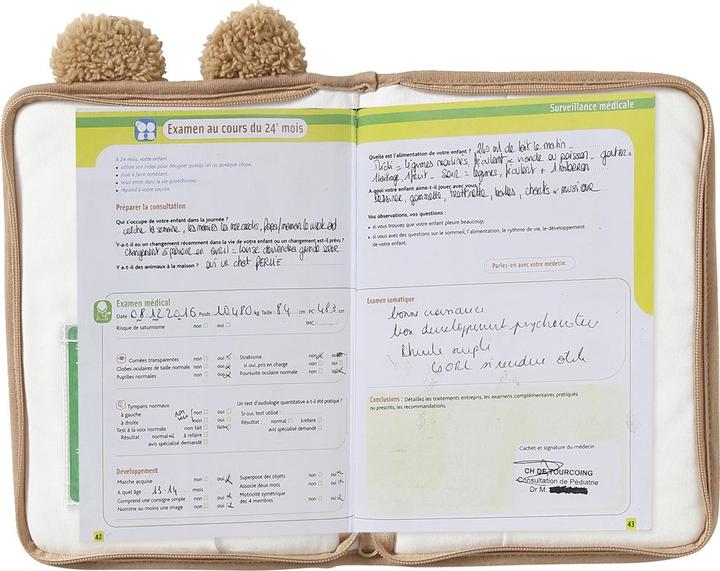 Examen au cours du 24e mois
A 24 mois, votre enfant
• utilise son index pour désigner quelqu'un ou quelque chose,
• joue à faire semblant,
• vous imite dans la vie quotidienne,
• répond à votre sourire.
Préparer la consultation
Qui s'occupe de votre enfant dans la journée ?
crèche la semaine, les mamies les mercredis, papa/maman le week end
Y-a-t-il eu un changement récemment dans la vie de votre enfant ou un changement est-il prévu ?
changement à prévoir en avril = Louise deviendra grande sœur
Y a-t-il des animaux à la maison ? oui un chat PERLE
Examen médical
Date 08.12.2016 Poids 10,480 kg Taille 84 cm PC 48,3 cm
Risque de saturnisme non oui IMC
Cornées transparentes non oui
Globes oculaires de taille normale non oui
Pupilles normales non oui
Strabisme non oui
si oui, pris en charge non oui
Poursuite oculaire normale non oui
Tympans normaux
à gauche non oui
à droite non oui
Test à la voix normale non fait fait
Résultat : normal à refaire
avis spécialisé demandé
Un test d'audiologie quantitative a-t-il été pratiqué ?
non oui
Si oui, test utilisé :
Résultat : normal à refaire
avis spécialisé demandé
Développement
Marche acquise non oui
A quel âge 13-14 mois
Comprend une consigne simple non oui
Nomme au moins une image non oui
Superpose des objets non oui
Associe deux mots non oui
Motricité symétrique
des 4 membres non oui
42
Surveillance médicale
Quelle est l'alimentation de votre enfant ? 240 ml de lait le matin
Midi = légumes moulinés, féculent + viande ou poisson - goûter =
1 laitage 1 fruit - Soir = légumes, féculent + 1 biberon
A quoi votre enfant aime-t-il jouer avec vous
Dessiner, gommettes, trottinette, balles, chants + musique
Vos observations, vos questions :
• si vous trouvez que votre enfant pleure beaucoup,
• si vous avez des questions sur le sommeil, l'alimentation, le rythme de vie, le développement
de votre enfant.
Parlez-en avec votre médecin.
Examen somatique
bonne croissance
bon développement psychomoteur
Rhinite simple
Conclusions : Détaillez les traitements entrepris, les examens complémentaires pratiqués
ou prescrits, les recommandations.
Cachet et signature du médecin
CH DE TOURCOING
Consultation de Pédiatrie
Dr M.
43